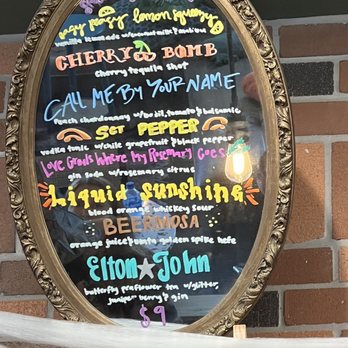 eazy peazy lemon squeezy
vanilla lemonade w/
CHERRY BOMB
cherry tequila shot
CALL ME BY YOUR NAME
Peach chardonnay w/ basil, tomato & balsamic
SGT PEPPER
vodka tonic w/chile grapefruit & black pepper
Love Grows Where My Rosemary Goes
gin soda w/rosemary citrus
Liquid Sunshine
blood orange whiskey sour
BEERMOSA
orange juice & golden spike hefe
Elton John
butterfly pea flower tea w/glitter,
juniper berry & gin
$9